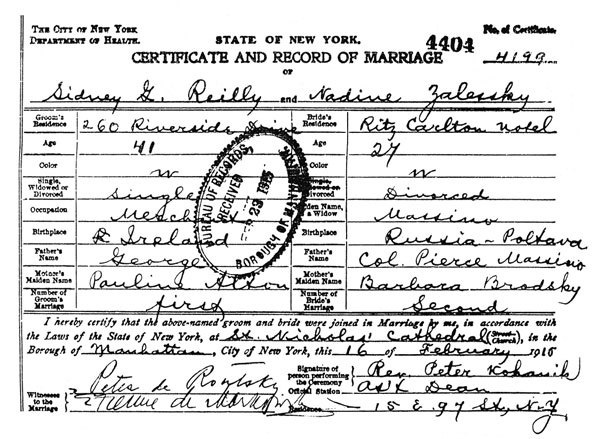 THE CITY OF NEW YORK
DEPARTMENT OF HEALTH.
STATE OF NEW YORK.
No. of Certificate
4404
CERTIFICATE AND RECORD OF MARRIAGE
4199
OF
Sidney G. Reilly and Nadine Zalessky
Groom's Residence 260 Riverside Drive
Bride's Residence Ritz Carlton Hotel
Age 41
Age 27
Color W
Color W
Single, Widowed or Divorced Single
Single, Widowed or Divorced Divorced
Occupation Merch
Maiden Name, if a Widow Massino
Birthplace Ireland
Birthplace Russia - Poltava
Father's Name George
Father's Name Col. Pierce Massino
Mother's Maiden Name Pauline Alton
Mother's Maiden Name Barbara Brodsky
Number of Groom's Marriage first
Number of Bride's Marriage Second
BUREAU OF RECORDS
RECEIVED
FEB 23 1915
BOROUGH OF MANHATTAN
I hereby certify that the above-named groom and bride were joined in Marriage by me, in accordance with
the Laws of the State of New York, at St. Nicholas' Cathedral (Street Church), in the
Borough of Manhattan, City of New York, this 16 of February 1915
Witnesses to the Marriage
Peter de
de
Signature of person performing the Ceremony Rev. Peter Kohanik
Official Station Ass't Dean
Residence 15 E. 97 St., N.Y.